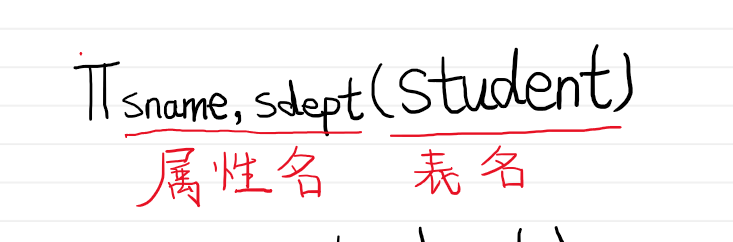 π sname, sdept (Student)
属性名 表名